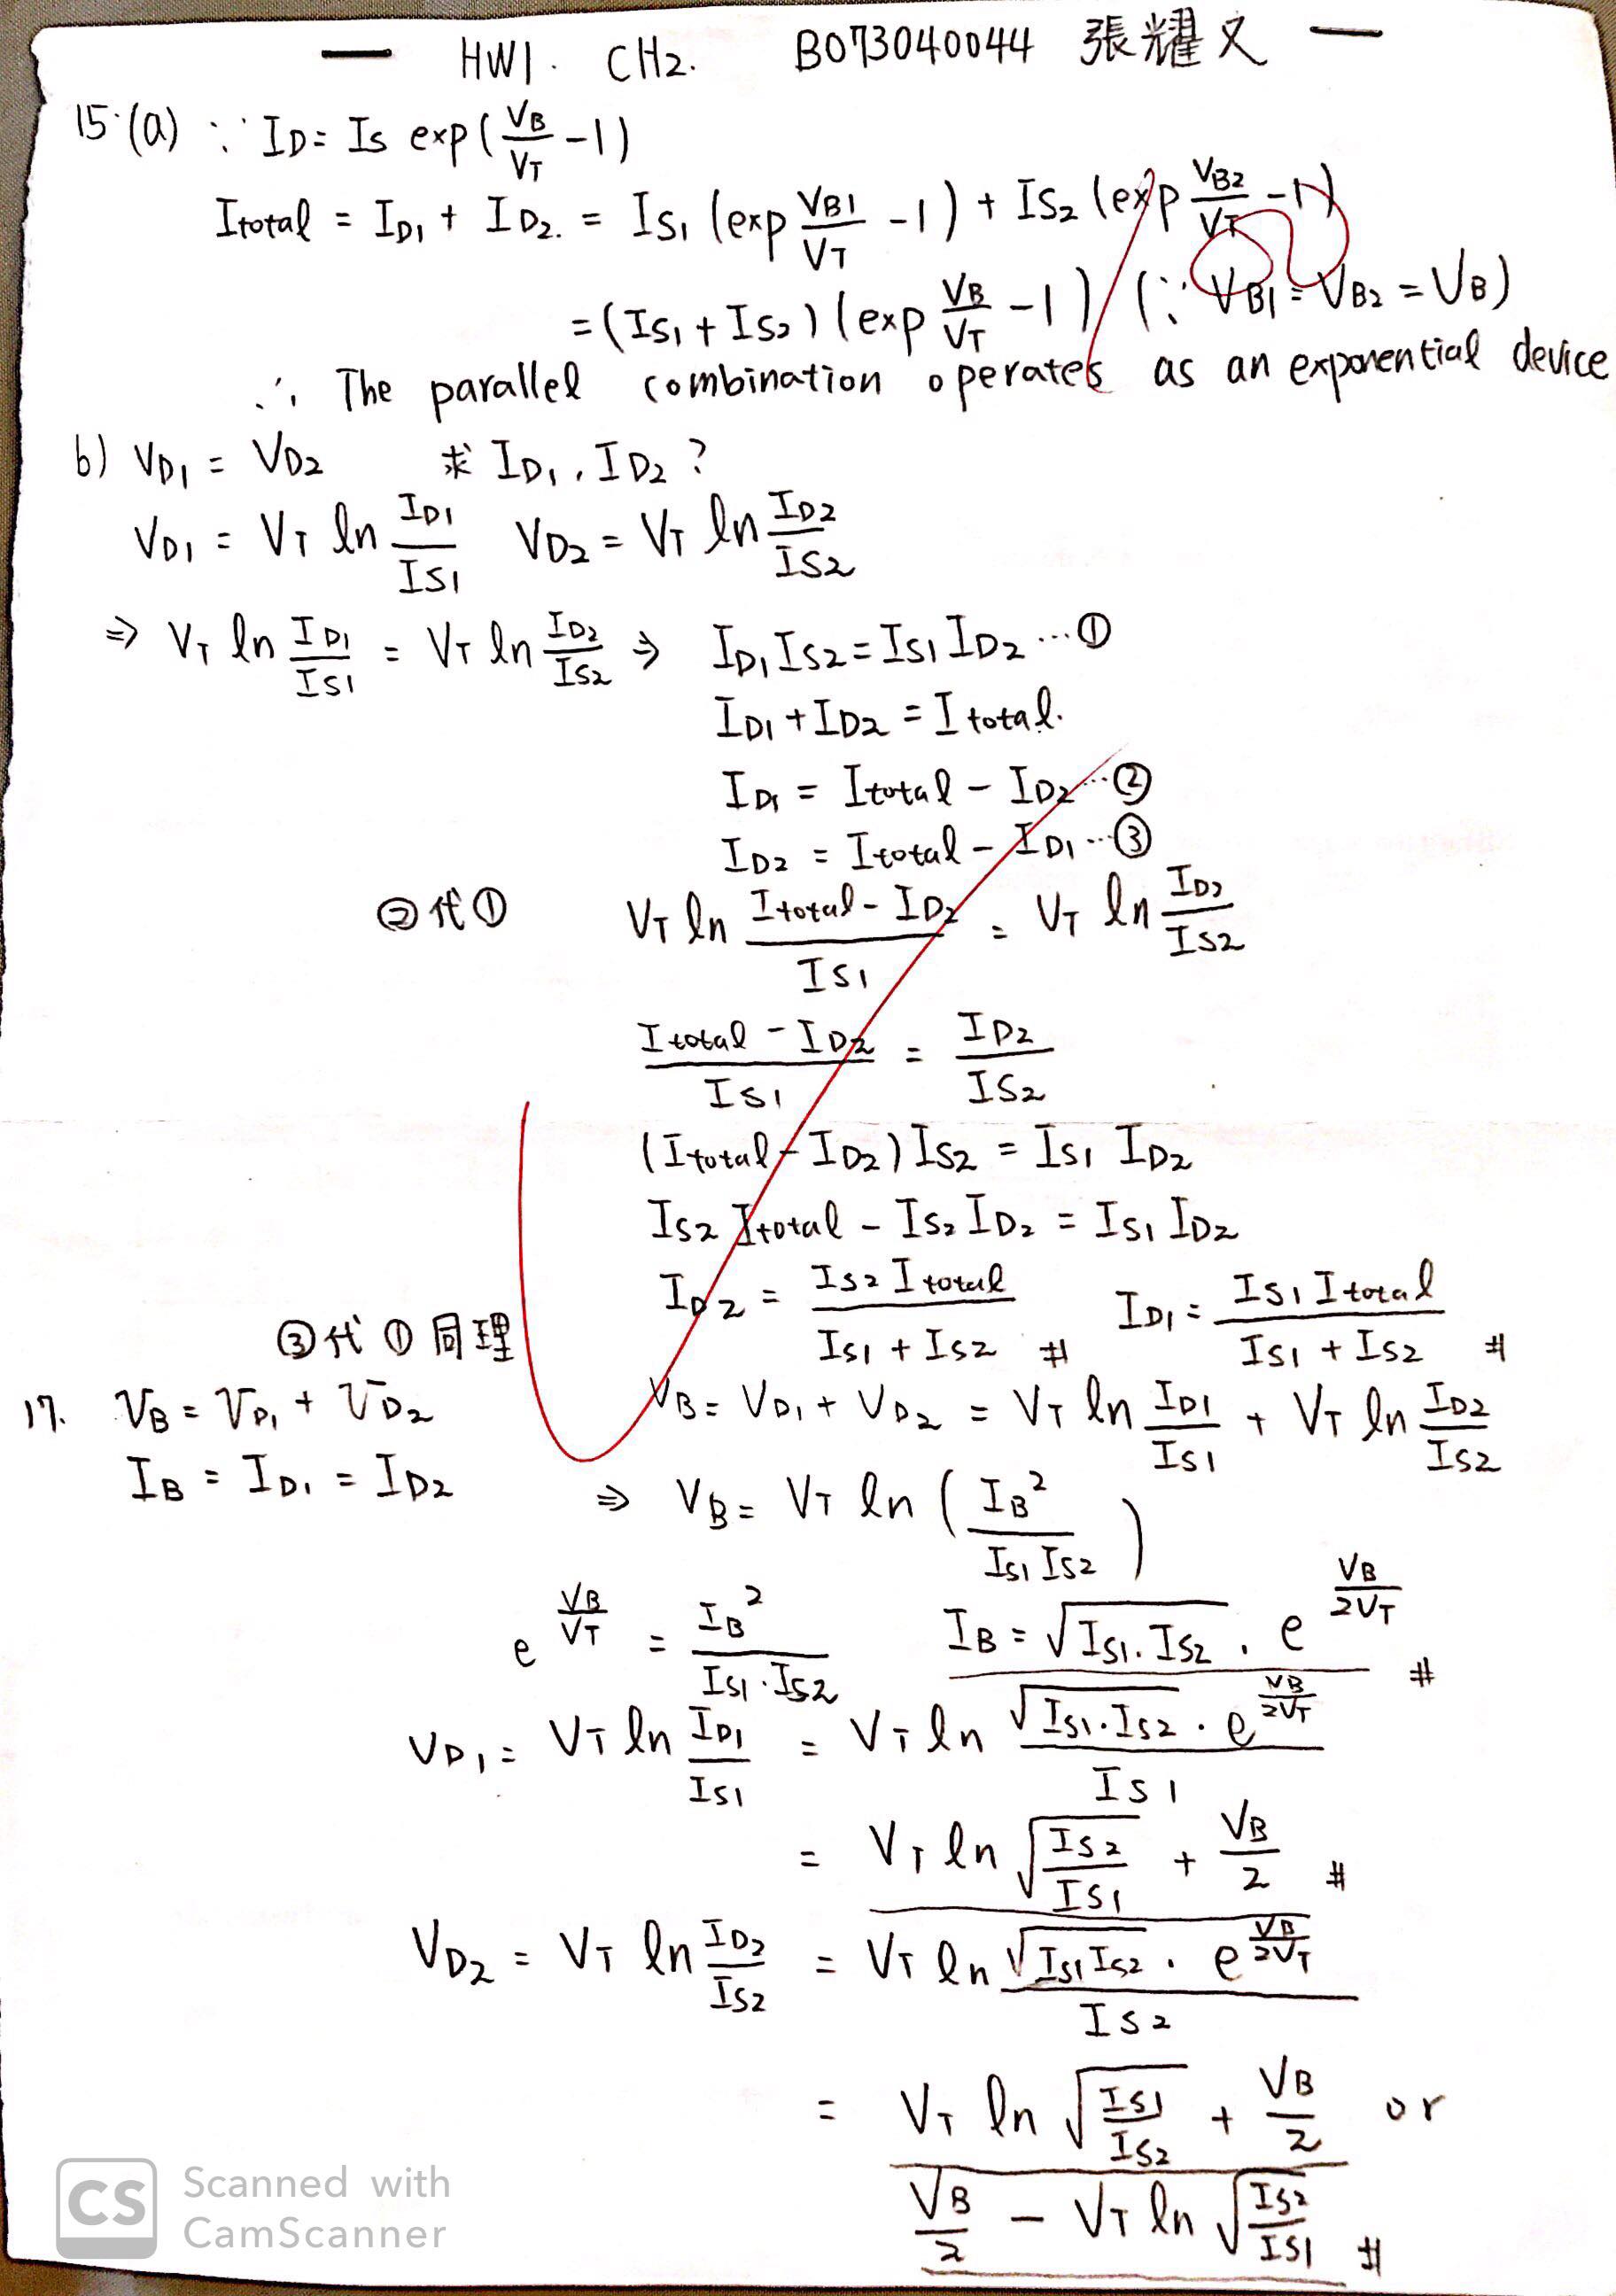 — HW1. CH2. B073040044 張耀文 —
15.(a) ∵ ID = Is exp(VB/VT -1)
Itotal = ID1 + ID2. = IS1 (exp VB1/VT -1) + IS2 (exp VB2/VT -1)
= (IS1 + IS2) (exp VB/VT -1) (∵ VB1 = VB2 = VB)
∴ The parallel combination operates as an exponential device
b) VD1 = VD2 求 ID1, ID2 ?
VD1 = VT ln ID1/IS1 VD2 = VT ln ID2/IS2
⇒ VT ln ID1/IS1 = VT ln ID2/IS2 ⇒ ID1 IS2 = IS1 ID2 ...①
ID1 + ID2 = Itotal.
ID1 = Itotal - ID2 ...②
ID2 = Itotal - ID1 ...③
②代① VT ln (Itotal - ID2)/IS1 = VT ln ID2/IS2
(Itotal - ID2)/IS1 = ID2/IS2
(Itotal - ID2) IS2 = IS1 ID2
IS2 Itotal - IS2 ID2 = IS1 ID2
③代①同理 ID2 = IS2 Itotal/(IS1 + IS2) # ID1 = IS1 Itotal/(IS1 + IS2) #
17. VB = VD1 + VD2 VB = VD1 + VD2 = VT ln ID1/IS1 + VT ln ID2/IS2
IB = ID1 = ID2 ⇒ VB = VT ln (IB²/(IS1 IS2))
e^(VB/VT) = IB²/(IS1·IS2) IB = √(IS1·IS2) · e^(VB/2VT) #
VD1 = VT ln ID1/IS1 = VT ln (√(IS1·IS2) · e^(VB/2VT))/IS1
= VT ln √(IS2/IS1) + VB/2 #
VD2 = VT ln ID2/IS2 = VT ln (√(IS1 IS2) · e^(VB/2VT))/IS2
= VT ln √(IS1/IS2) + VB/2 or
VB/2 - VT ln √(IS2/IS1) #
CS Scanned with
CamScanner